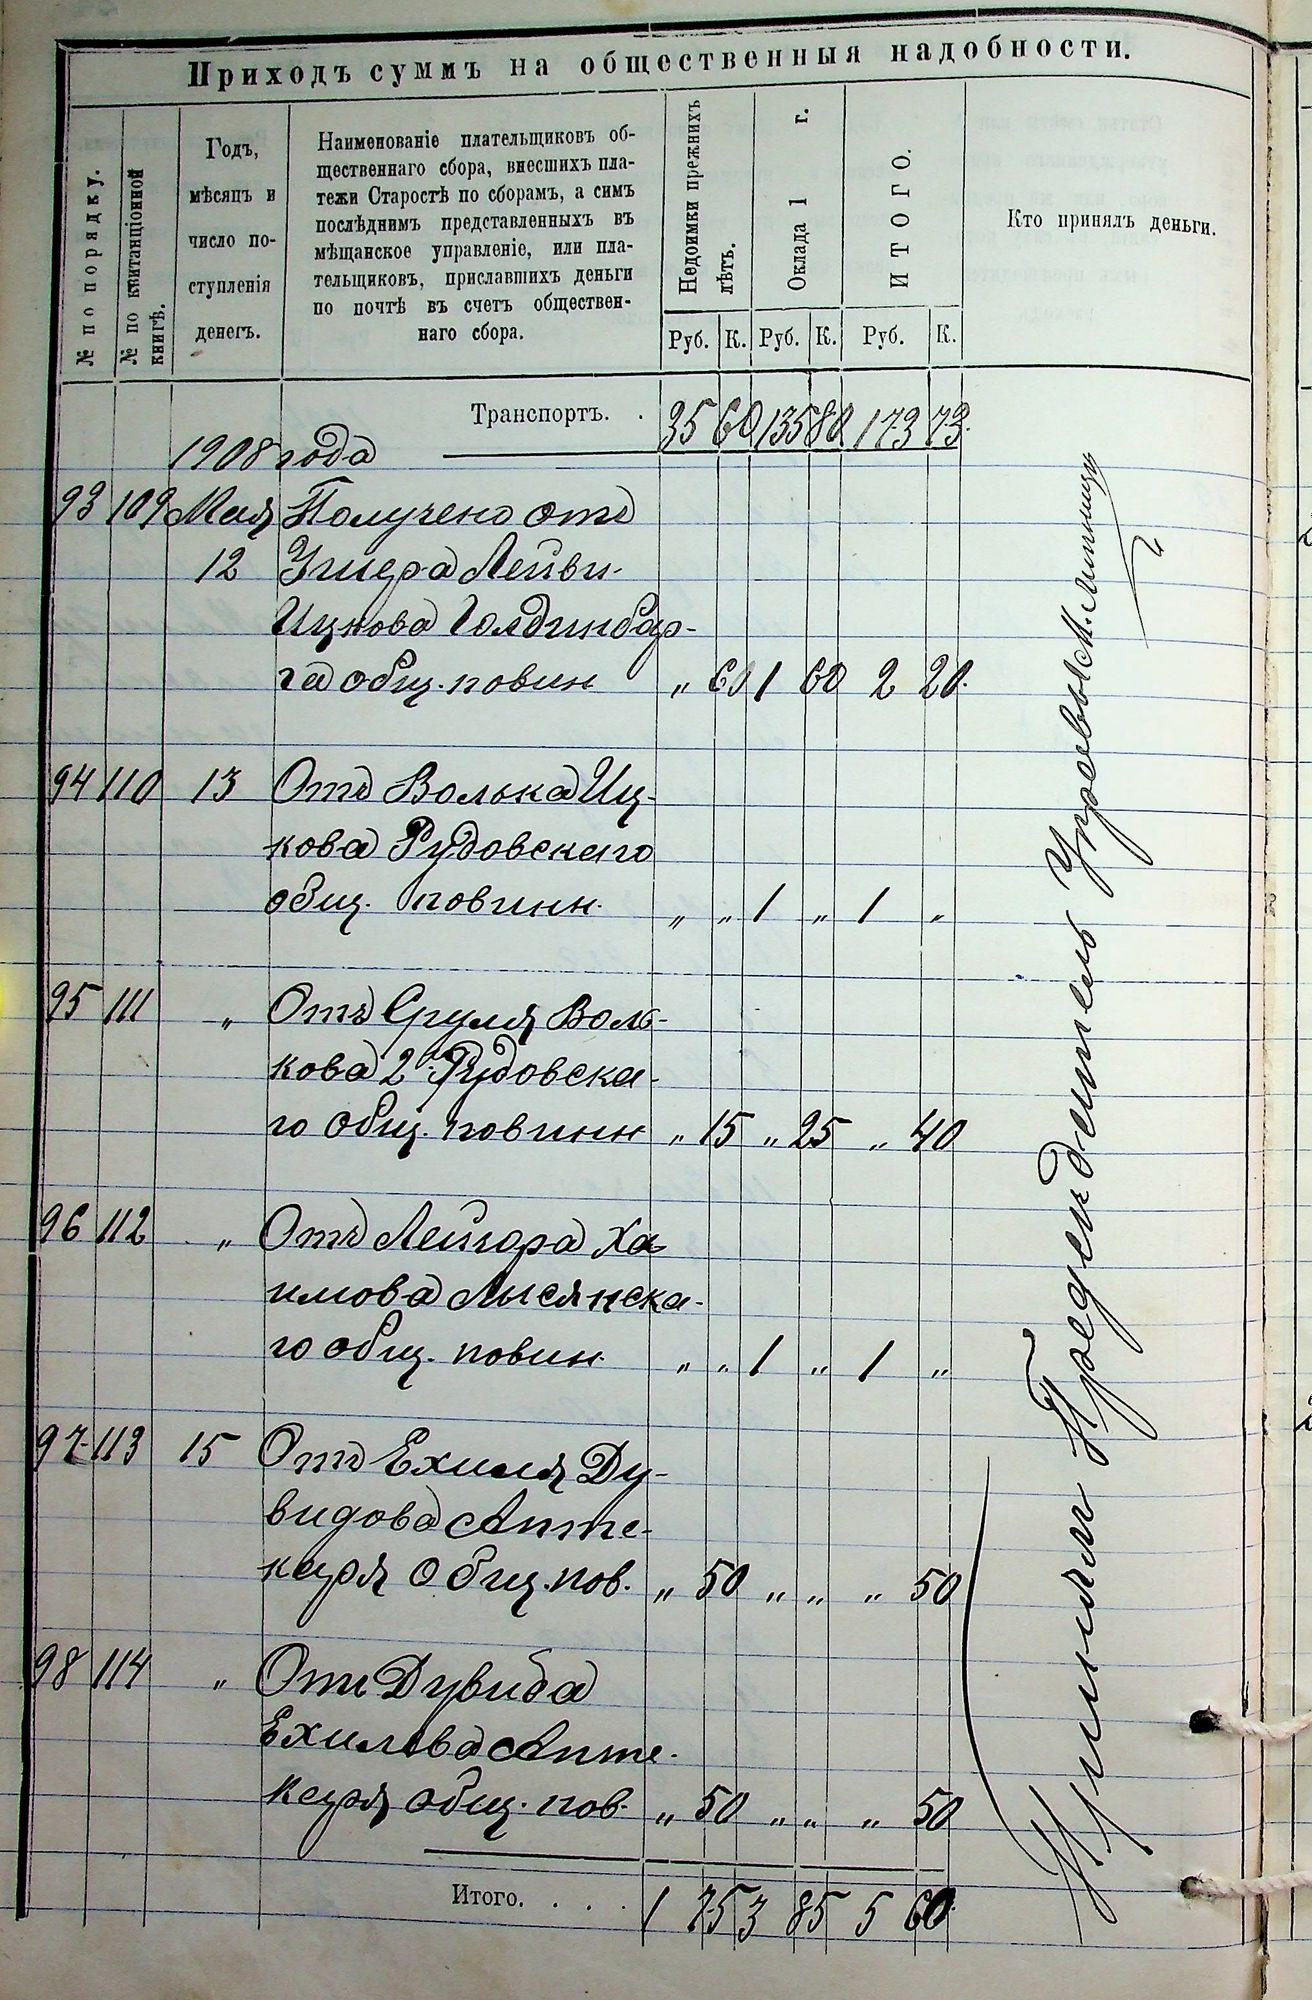 Приходъ суммъ на общественныя надобности.
№ по порядку.
№ по квитанціонной книгѣ.
Годъ,
мѣсяцъ и
число по-
ступленія
денегъ.
Наименованіе плательщиковъ об-
щественнаго сбора, внесшихъ пла-
тежи Старостѣ по сборамъ, а симъ
послѣднимъ представленныхъ въ
мѣщанское управленіе, или пла-
тельщиковъ, приславшихъ деньги
по почтѣ въ счетъ обществен-
наго сбора.
Недоимки прежнихъ лѣтъ.
Оклада 1 г.
ИТОГО.
Кто принялъ деньги.
Руб. К. Руб. К. Руб. К.
Транспортъ. . 35 60 135 80 173 73.
1908 года
93 109 Мая Получено отъ
12 Зисера Лейви-
Ицкова Голдинбар-
га общ. повин „ 60 1 60 2 20.
94 110 13 Отъ Волька Иц-
кова Рудовскаго
общ. повинн. „ „ 1 „ 1 „
95 111 „ Отъ Сруля Воль-
кова 2го Рудовска-
го общ. повинн „ 15 „ 25 „ 40
96 112 „ Отъ Лейзора Ха
имова Лысянска-
го общ. повин. „ „ 1 „ 1 „
97 113 15 Отъ Ехиля Ду-
видова Апте-
каря общ. пов. „ 50 „ „ „ 50
98 114 „ Отъ Дувида
Ехилева Апте-
каря общ. пов. „ 50 „ „ „ 50
Итого. . . . . 1 75 3 85 5 60.
Принялъ Предсѣдатель Управы М.